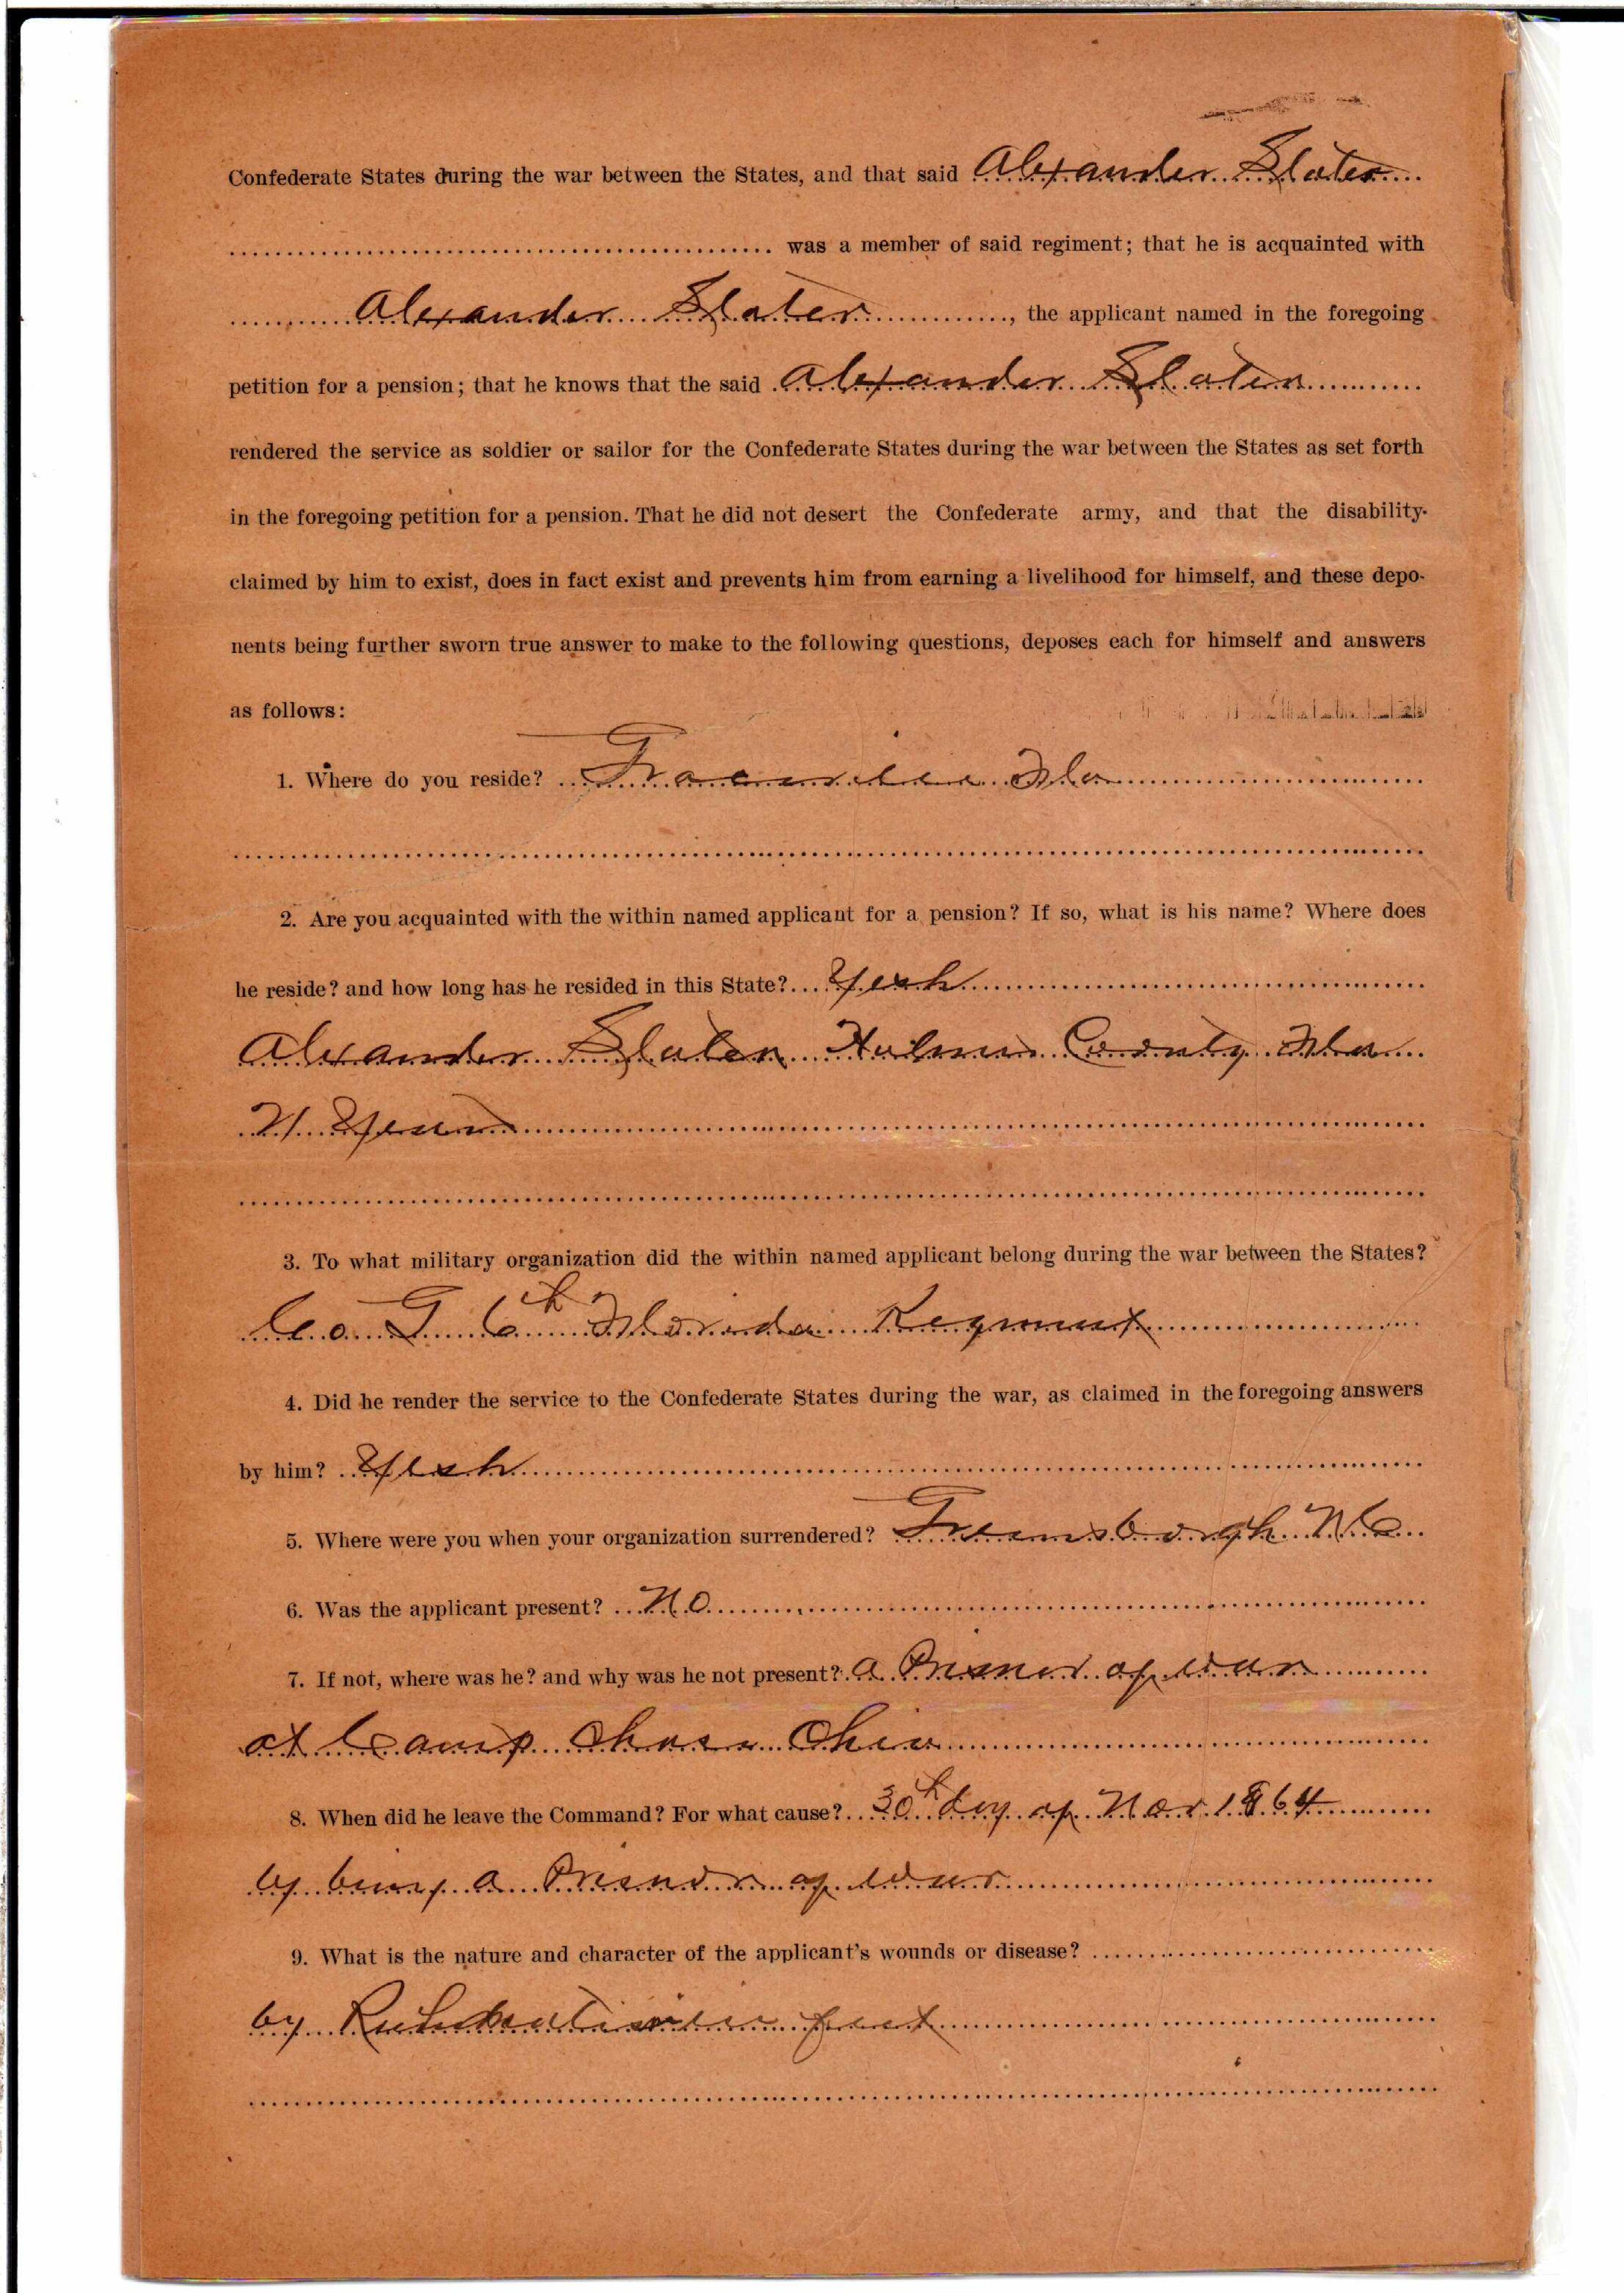 Confederate States during the war between the States, and that said Alexander Slater
was a member of said regiment; that he is acquainted with
Alexander Slater, the applicant named in the foregoing
petition for a pension; that he knows that the said Alexander Slater
rendered the service as soldier or sailor for the Confederate States during the war between the States as set forth
in the foregoing petition for a pension. That he did not desert the Confederate army, and that the disability
claimed by him to exist, does in fact exist and prevents him from earning a livelihood for himself, and these depo-
nents being further sworn true answer to make to the following questions, deposes each for himself and answers
as follows:
1. Where do you reside? Fla
2. Are you acquainted with the within named applicant for a pension? If so, what is his name? Where does
he reside? and how long has he resided in this State? Yesh
Alexander Slater Holmes County Fla
Years
3. To what military organization did the within named applicant belong during the war between the States?
Co G 6th Florida Regment
4. Did he render the service to the Confederate States during the war, as claimed in the foregoing answers
by him? Yesh
5. Where were you when your organization surrendered? Greensborgh N C
6. Was the applicant present? No
7. If not, where was he? and why was he not present? a Prisner of war
at Camp Chase Ohio
8. When did he leave the Command? For what cause? 30th day of Nov 1864
by being a Prisner of war
9. What is the nature and character of the applicant's wounds or disease?
by